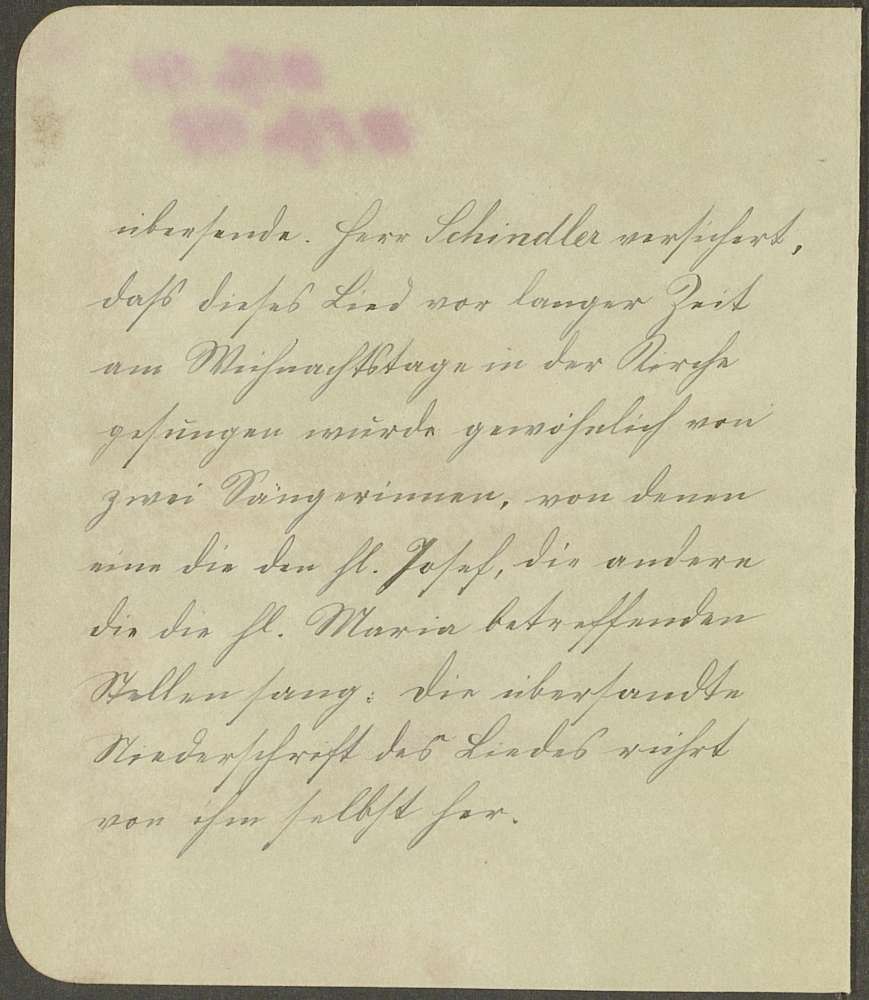 übersende. Herr Schindler versichert,
daß dieses Lied vor langer Zeit
am Weihnachtstage in der Kirche
gesungen wurde gewöhnlich von
zwei Sängerinnen, von denen
eine die den hl. Josef, die andere
die die hl. Maria betreffenden
Stellen sang. Die übersandte
Niederschrift des Liedes rührt
von ihm selbst her.